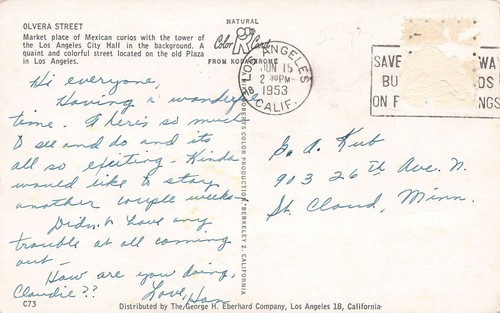 OLVERA STREET
Market place of Mexican curios with the tower of
the Los Angeles City Hall in the background. A
quaint and colorful street located on the old Plaza
in Los Angeles.
NATURAL
Color Card
FROM KODACHROME
LOS ANGELES
JUN 15
2 30PM
1953
CALIF.
SAVE
BU
ON F
Hi everyone,
Having a wonderful
time. There's so much
to see and do and its
all so exciting. Kinda
would like to stay
another couple weeks
Didn't have any
trouble at all coming
out-
How are you doing,
Claudie??
Love,
G. A. Kub
903 26th Ave. N.
St. Cloud, Minn.
COLOR PRODUCTION - BERKELEY 2, CALIFORNIA
C73
Distributed by The George H. Eberhard Company, Los Angeles 18, California